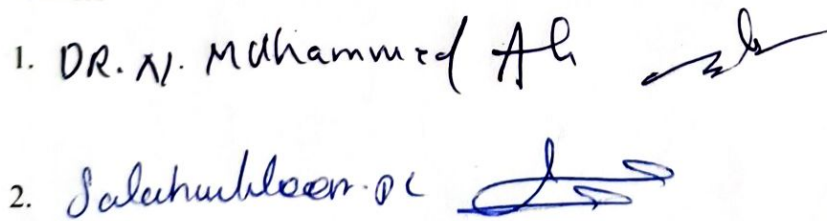 1. DR. N. Muhammed Ali
2. Salahuddeen. PC